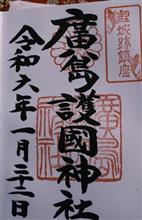 鯉城跡鎮座
廣島護國神社
令和六年一月日